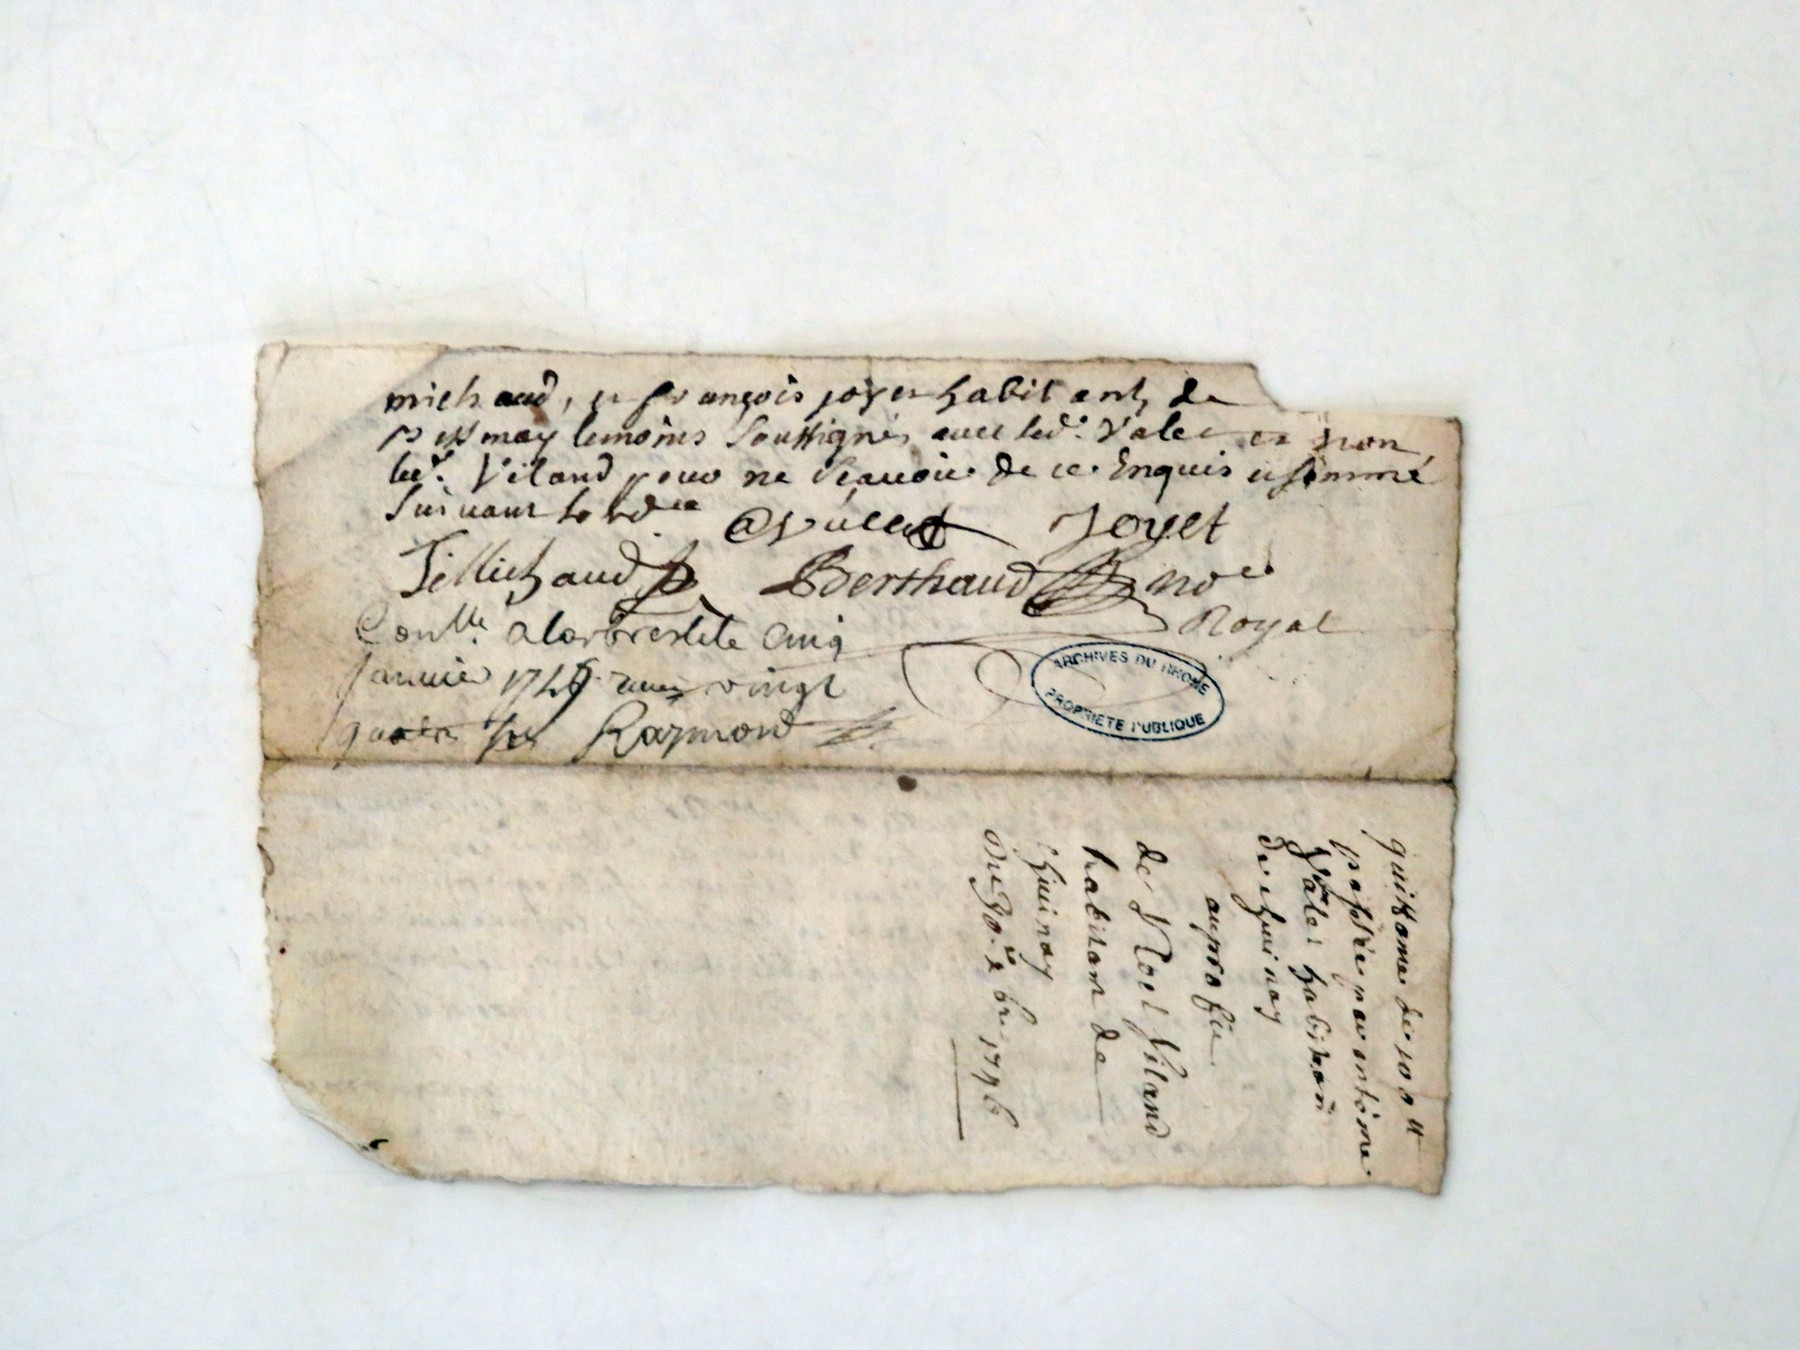 michaud, et françois joyet habitants de
temoins soussignés avec led.t Valet et non
led.t Viland pour ne sçavoir de ce Enquis et sommé
suivant lord.ce avalet Joyet
JeMichaud Berthaud no.re
Royal
Con.lle a larbresle le cinq
janvier 174 vingt
quatre Raymond
ARCHIVES DU RHONE
PROPRIÉTÉ PUBLIQUE
quittance de 100 ll
passée par antoine
Valet habitant
de chuinay
au profit
de Noel Viland
habitant de
Chuinay
Du 30.e x bre 1746